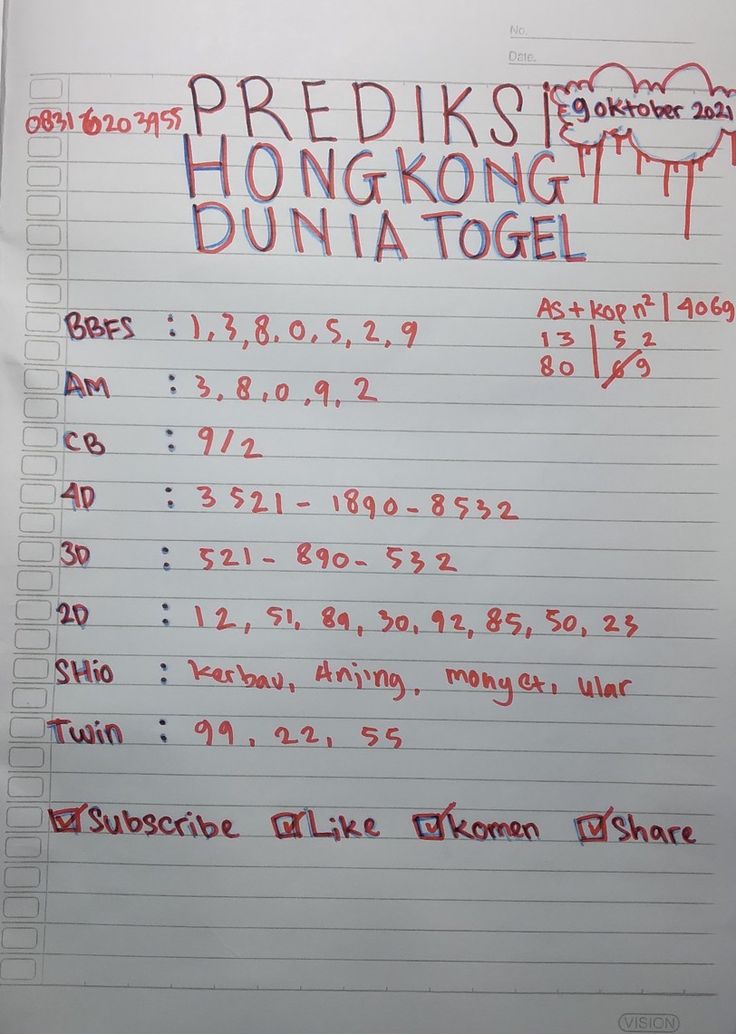 No.
Date.
PREDIKSI
9 oktober 2021
HONGKONG
DUNIA TOGEL
AS + KOP n² | 4069
13 | 5 2
80 | 9
BBFS : 1, 3, 8, 0, 5, 2, 9
AM : 3, 8, 0, 9, 2
CB : 9/2
4D : 3521 - 1890 - 8532
3D : 521 - 890 - 532
2D : 12, 51, 89, 30, 92, 85, 50, 23
SHio : Kerbau, Anjing, monyet, ular
Twin : 99, 22, 55
Subscribe Like komen Share
VISION